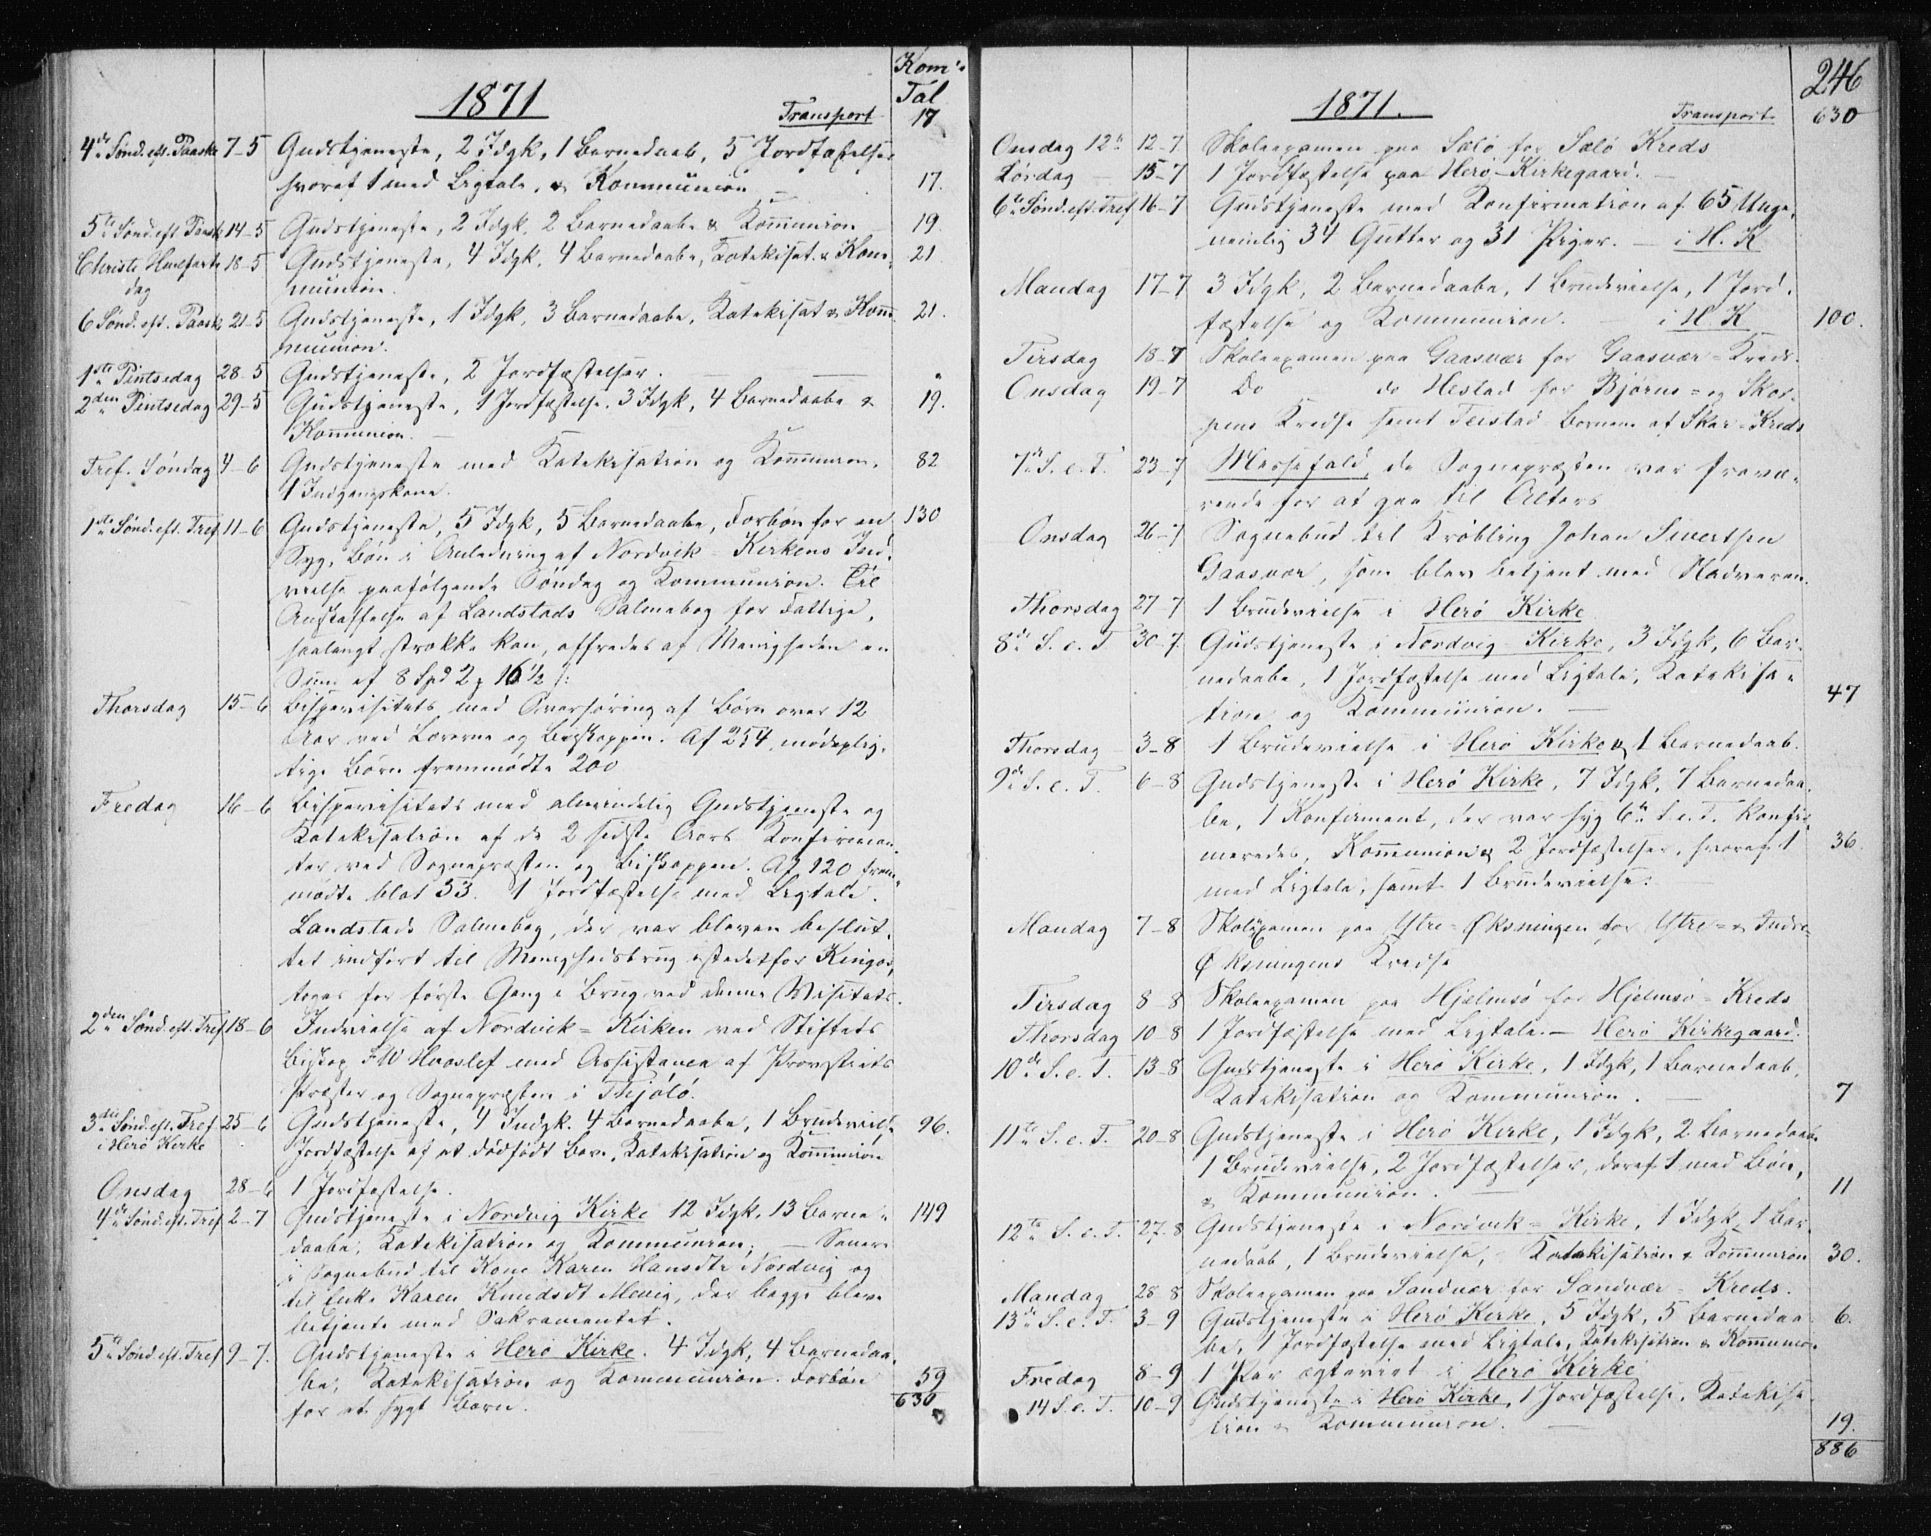 Kom:
Tal
1871
Transport 17
4de Sønd. eft. Paaske 7-5 Gudstjeneste, 2 Idgk, 1 Barnedaab, 5 Jordfæstelser
hvoraf 1 med Ligtale, & Kommunion 17.
5te Sønd. eft. Paask 14-5 Gudstjeneste, 2 Idgk, 2 Barnedaabe & Kommunion 19.
Christi Himlfarts 18-5 Gudstjeneste, 4 Idgk, 4 Barnedaabe, Katekisat. & Kom- 21
dag munion.
6 Sønd. eft. Paask 21-5 Gudstjeneste, 1 Idgk, 3 Barnedaabe, Katekisat & Kom- 21.
munion.
1ste Pintsedag 28-5 Gudstjeneste, 2 Jordfæstelser. "
2den Pintsedag 29-5 Gudstjeneste, 1 Jordfæstelse, 3 Idgk, 4 Barnedaabe & 19.
Kommunion.
Tref. Søndag 4-6 Gudstjeneste med Katekisation og Kommunion. 82
1 Indgangskone.
1ste Sønd. eft. Tref. 11-6 Gudstjeneste, 5 Idgk, 5 Barnedaabe, Forbøn for en 130
Syg, Bøn i Anledning af Nordvik-Kirkens Ind-
vielse paafølgende Søndag og Kommunion. Til
Anskaffelse af Landstads Salmebog for Fattige,
saalangt strække kan, offredes af Menigheden en
Sum af 8 Spd 2 ₰ 16 1/2 s:
Thorsdag 15-6 Bispevisitats med Overhøring af Børn over 12
Aar ved Lærerne og Biskoppen. Af 254 mødeplig-
tige Børn fremmødte 200
Fredag 16-6 Bispevisitats med almindelig Gudstjeneste og
Katekisation af de 2 sidste Aars Konfirman-
ter ved Sognepræsten og Biskoppen. Af 120 frem-
mødte blot 53. 1 Jordfæstelse med Ligtale.
Landstads Salmebog, der var bleven beslut-
tet indført til Menighedsbrug istedetfor Kingos,
toges for første Gang i Brug ved denne Visitats.
2den Sønd. eft. Tref 18-6 Indvielse af Nordvik-Kirken ved Stiftets
Biskop FW Hvoslef med Assistance af Provstiets
Præster og Sognepræsten i Thjøtø.
3die Sønd. eft. Tref 25-6 Gudstjeneste, 4 Indgk. 4 Barnedaabe, 1 Brudevielse 96.
i Herø Kirke Jordfæstelse af et dødfødt Barn, Katekisation og Kommunion
Onsdag 28-6 1 Jordfæstelse.
4de Sønd. eft. Tref 2-7 Gudstjeneste i Nordvig Kirke 12 Idgk, 13 Barne- 149
daabe, Katekisation og Kommunion, — Senere
i Sognebud til Kone Karen Hansdtr Nordvig og
til Enke Karen Knudsdt Mevig, der begge bleve
betjente med Sakramentet.
5te Sønd. eft. Tref 9-7. Gudstjeneste i Herø Kirke. 4 Idgk, 4 Barnedaa-
be, Katekisation og Kommunion. Forbøn 59
for et sygt Barn. 630
246
1871.
Transport 630
Onsdag 12te 12-7 Skoleexamen paa Sælø for Sælø Kreds
Lørdag 15-7 1 Jordfæstelse paa Herø-Kirkegaard.
6te Sønd. eft. Tref 16-7 Gudstjeneste med Konfirmation af 65 Unge,
nemlig 34 Gutter og 31 Piger. — i H. K
Mandag 17-7 3 Idgk, 2 Barnedaabe, 1 Brudevielse, 1 Jord-
fæstelse og Kommunion. i H. K 100.
Tirsdag 18-7 Skoleexamen paa Gaasvær for Gaasvær-Kreds.
Onsdag 19-7 Do do Hestad for Bjørns- og Skor-
pens Kredse samt Teistad-Børnene af Skar-Kreds
7de S. e. T. 23-7 Messefald, da Sognepræsten var fravæ-
rende for at gaa til Alters
Onsdag 26-7 Sognebud til Krøbling Johan Sivertsen
Gaasvær, som blev betjent med Nadveren.
Thorsdag 27-7 1 Brudevielse i Herø Kirke
8de S. e. T 30-7. Gudstjeneste i Nordvig Kirke, 3 Idgk, 6 Bar-
nedaabe, 1 Jordfæstelse med Ligtale, Katekisa-
tion og Kommunion. 47
Thorsdag 3-8 1 Brudevielse i Herø Kirke & 1 Barnedaab.
9de S. e. T. 6-8 Gudstjeneste i Herø Kirke, 7 Idgk, 7 Barnedaa-
be, 1 Konfirmant, der var syg 6te S. e. T. konfir-
meredes, Kommunion & 2 Jordfæstelser, hvoraf 1 36.
med Ligtale, samt 1 Brudevielse.
Mandag 7-8 Skolexamen paa Ytre-Øksningen for Ytre- & Indre-
Øksningens Kredse
Tirsdag 8-8 Skoleexamen paa Hjelmsø for Hjelmsø-Kreds
Thorsdag 10-8 1 Jordfæstelse med Ligtale. — Herø Kirkegaard.
10de S. e. T. 13-8 Gudstjeneste i Herø Kirke, 1 Idgk, 1 Barnedaab,
Katekisation og Kommunion. 7
11te S. e. T. 20-8 Gudstjeneste i Herø Kirke, 1 Idgk, 2 Barnedaab
1 Brudevielse, 2 Jordfæstelser, deraf 1 med Bøn,
& Kommunion. 11
12te S. e. T. 27-8 Gudstjeneste i Nordvik-Kirke, 1 Idgk, 1 Bar-
nedaab, 1 Brudevielse, Katekisation & Kommunion 30.
Mandag 28-8 Skoleexamen paa Sandvær for Sandvær-Kreds.
13de S. e. T. 3-9 Gudstjeneste i Herø Kirke, 5 Idgk, 5 Barnedaa- 6.
be, 1 Jordfæstelse med Ligtale, Katekisation & Kommunion
Fredag 8-9 1 Par ægteviet i Herø Kirke
14 S. e. T. 10-9 Gudstjeneste i Herø Kirke, 1 Jordfæstelse, Katekisa-
tion & Kommunion. 19.
886